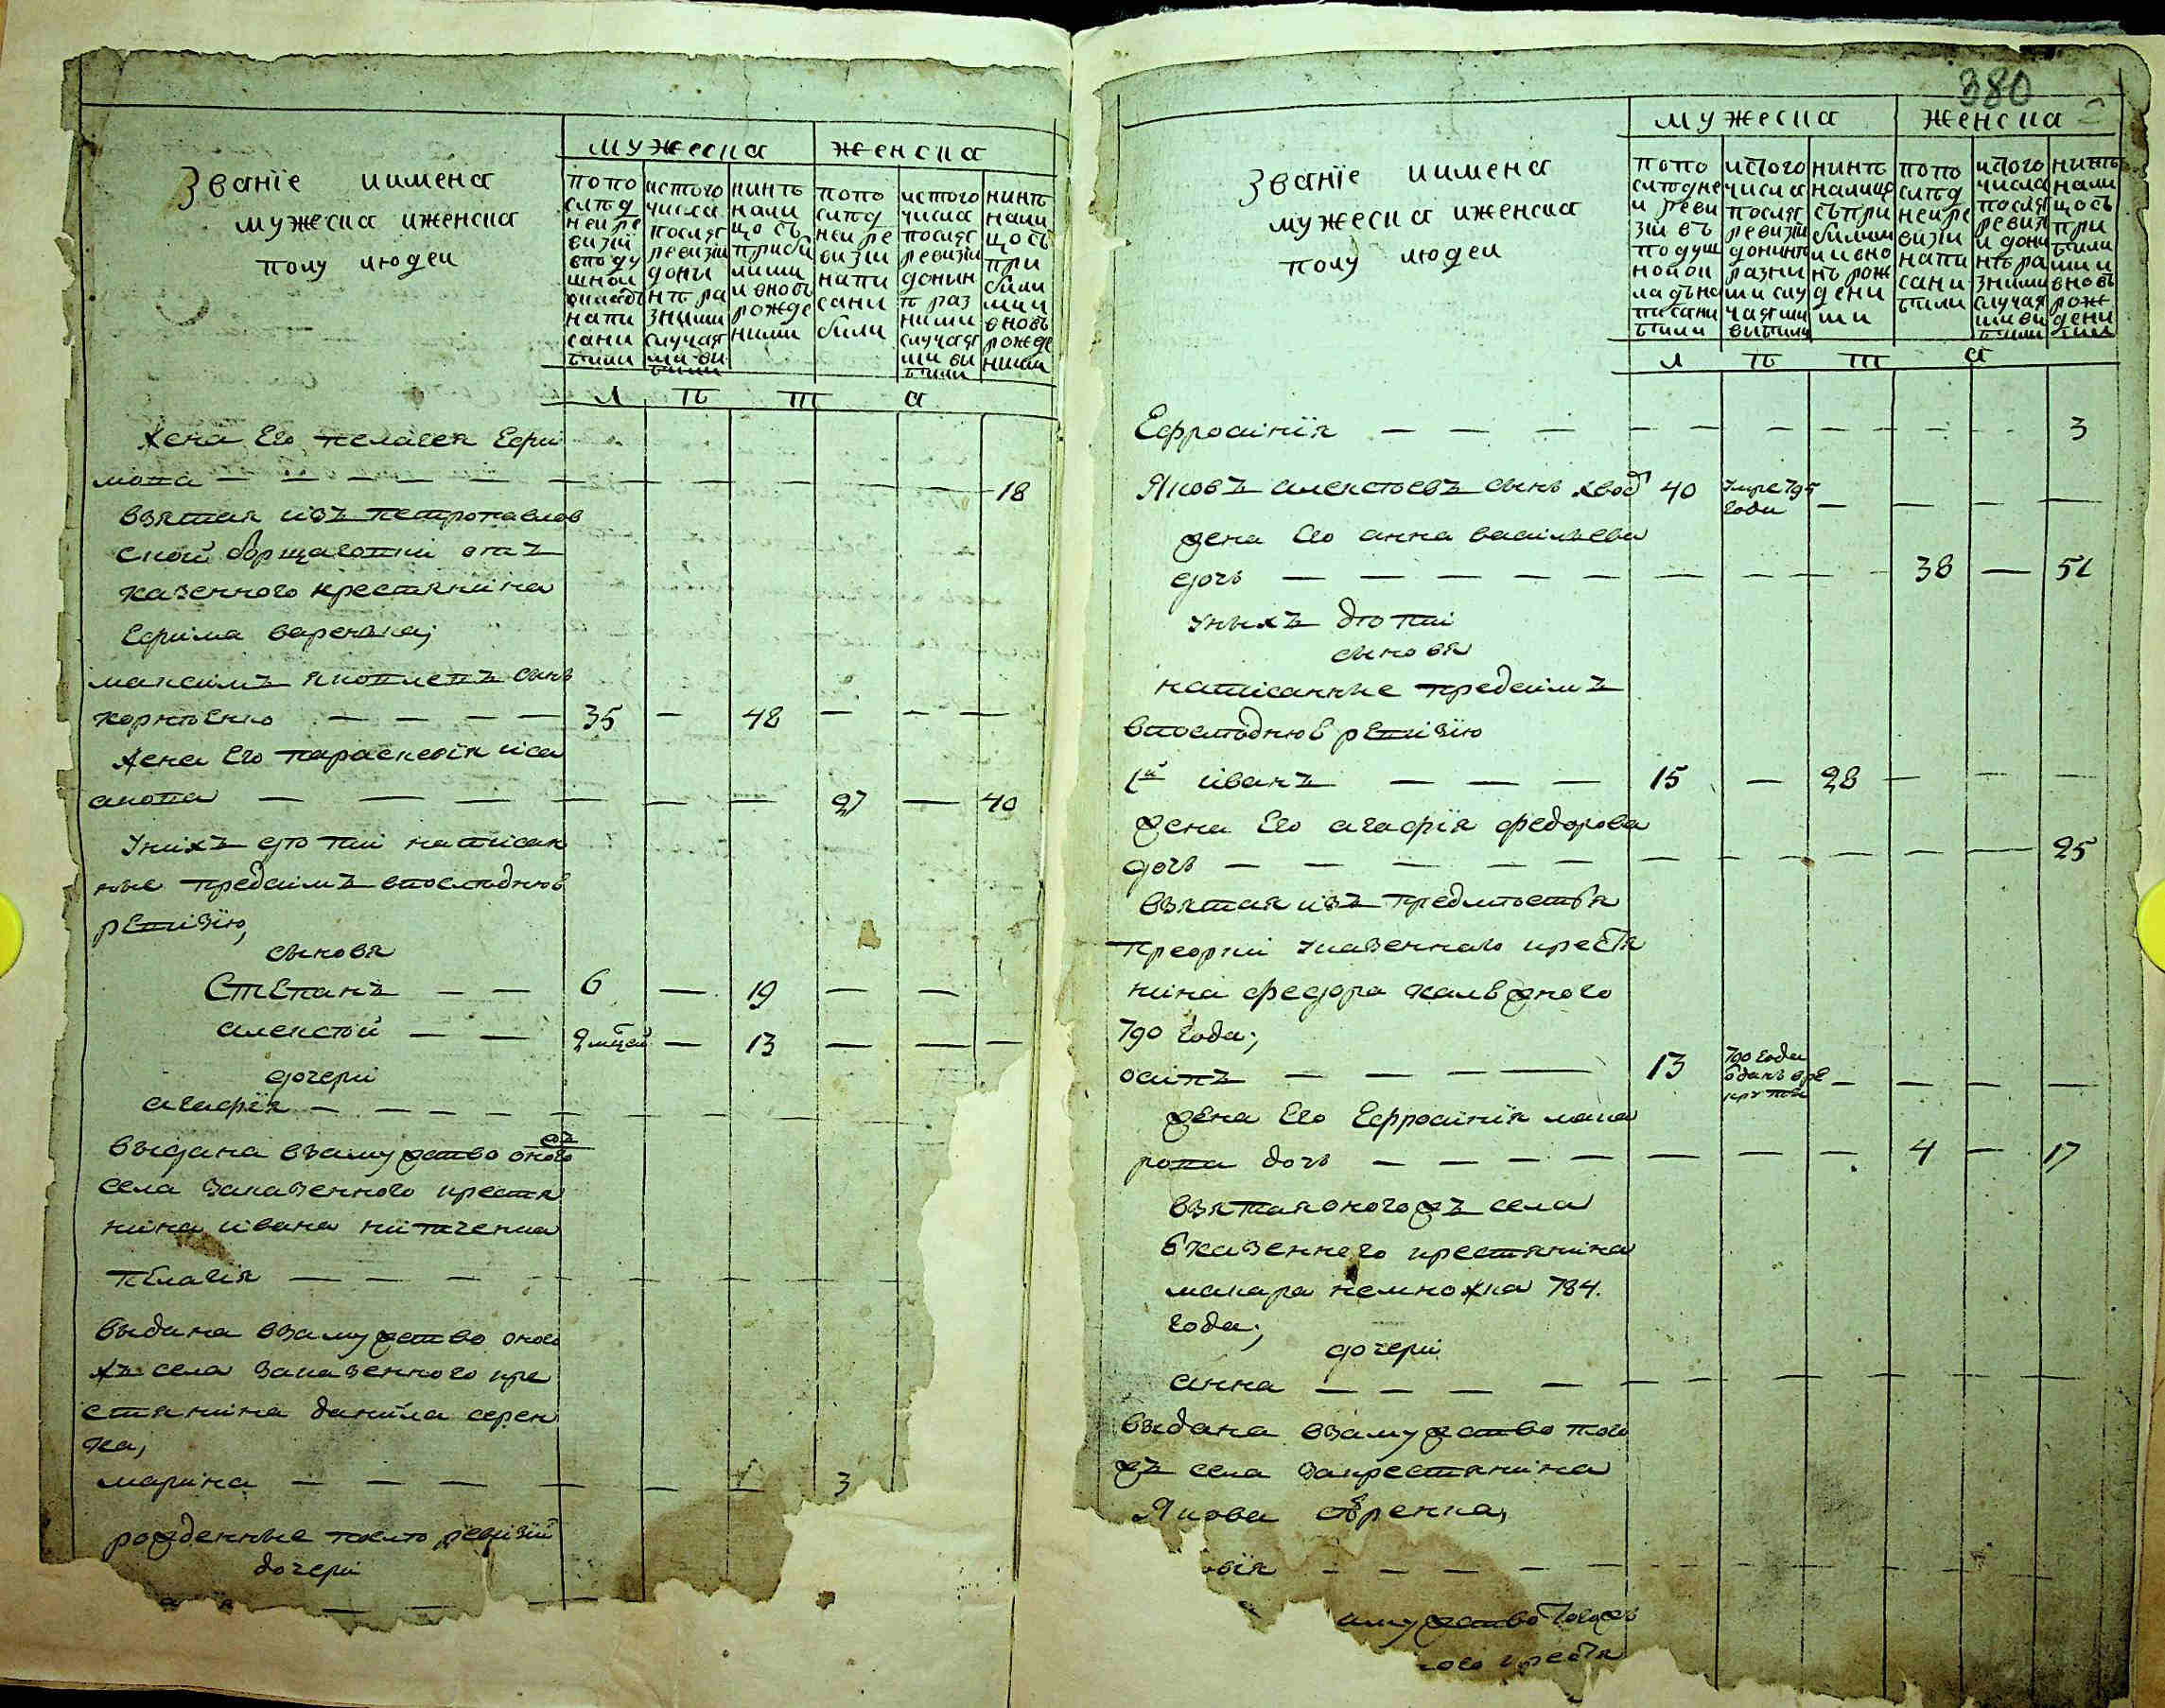 Званїе иимена
мужеска иженска
полу людеи
мужеска женска
попо
слѣд
неи ре
визїи
вподу
шнои
окладъ
напи
сани
были
истого
числа
послѧ
ревизїи
дони
нѣ ра
зними
случая
ми ви
были
нинѣ
нали
цо съ
приби
лими
и вновь
рожде
ними
попо
слѣд
неи ре
визїи
напи
сани
били
истого
числа
послѧ
ревизїи
донин
ѣ раз
ними
случаѧ
ми ви
были
нинѣ
нали
цо съ
при
били
ми и
вновь
рожде
ними
л ѣ т а
жена Его пелагея Ефри
мова — — — — — — — — — 18
взятая изъ петропавлов
ской борщаговки отъ
казенного крестянина
Ефима вареника;
максимъ яковлевъ сынъ
корнѣенко — — — — 35 — 48 — — —
жена Его параскевїя иса
акова — — — — — — 27 — 40
Унихъ дѣти написан
ные предсимъ впослѣднюю
ревизїю,
сыновя
Степанъ — — 6 — 19 — —
алексѣй — — 2 мцей — 13 — — —
дочери
агафїя — — — — — — — —
выдана взамужство оного жъ
села заказенного крестя
нина ивана нитченка
пелагїя — — — — — — — —
выдана взамужство оного
жъ села заказенного кре
стянина данила серен
ка;
марина — — — — — — 3
рожденные послѣ ревизїи
дочери
380
Званїе иимена
мужеска иженска
полу людеи
мужеска женска
попо
слѣдне
и реви
зїи въ
подуш
нои ок
ладъ на
писани
были
истого
числа
послѧ
ревизїи
донинѣ
разни
ми слу
чаѧми
вибили
нинѣ
налицо
съ при
билими
и вно
нь рож
дени
ми
попо
слѣд
неи ре
визїи
напи
сани
были
истого
числа
послѧ
ревизи
и дони
нѣ ра
зними
случаѧ
ми ви
были
нинѣ
нали
цо съ
при
были
ми и
вновь
рож
дени
ми
л ѣ т а
Ефросинїя — — — — — — — — — — 3
Яковъ алексѣевъ сынъ 40 умре 795 года — — — —
жена Его анна васильева
дочь — — — — — — — — 38 — 51
унихъ дѣти
сыновя
написанные предсимъ
впослѣднюю ревизїю
1й иванъ — — — 15 — 28 — — —
жена Его агафїя федорова
дочь — — — — — — — — — — — 25
взятая изъ предмѣстья
казенного крестя
нина федора
790 года;
осипъ — — — — 13 790 года отданъ в рекруты — — — —
жена Его Ефросинїя мака
рова дочь — — — — — — — 4 — 17
взятая оногожъ села
от казенного крестянина
макара немножка 784.
года;
дочери
анна — — — — — — — — — —
выдана взамужство того
жъ села закрестянина
Якова серенка,
вїя — — — — — — — — —
амужство тогожъ
ого крестя